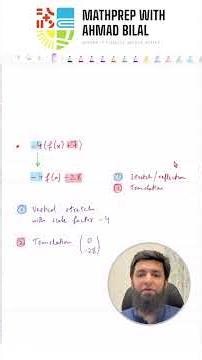 MATHPREP WITH
AHMAD BILAL
-4(f(x)+7)
-4f(x) -28
① Stretch/reflection
② Translation
① Vertical stretch
with scale factor -4
② Translation (0
-28)